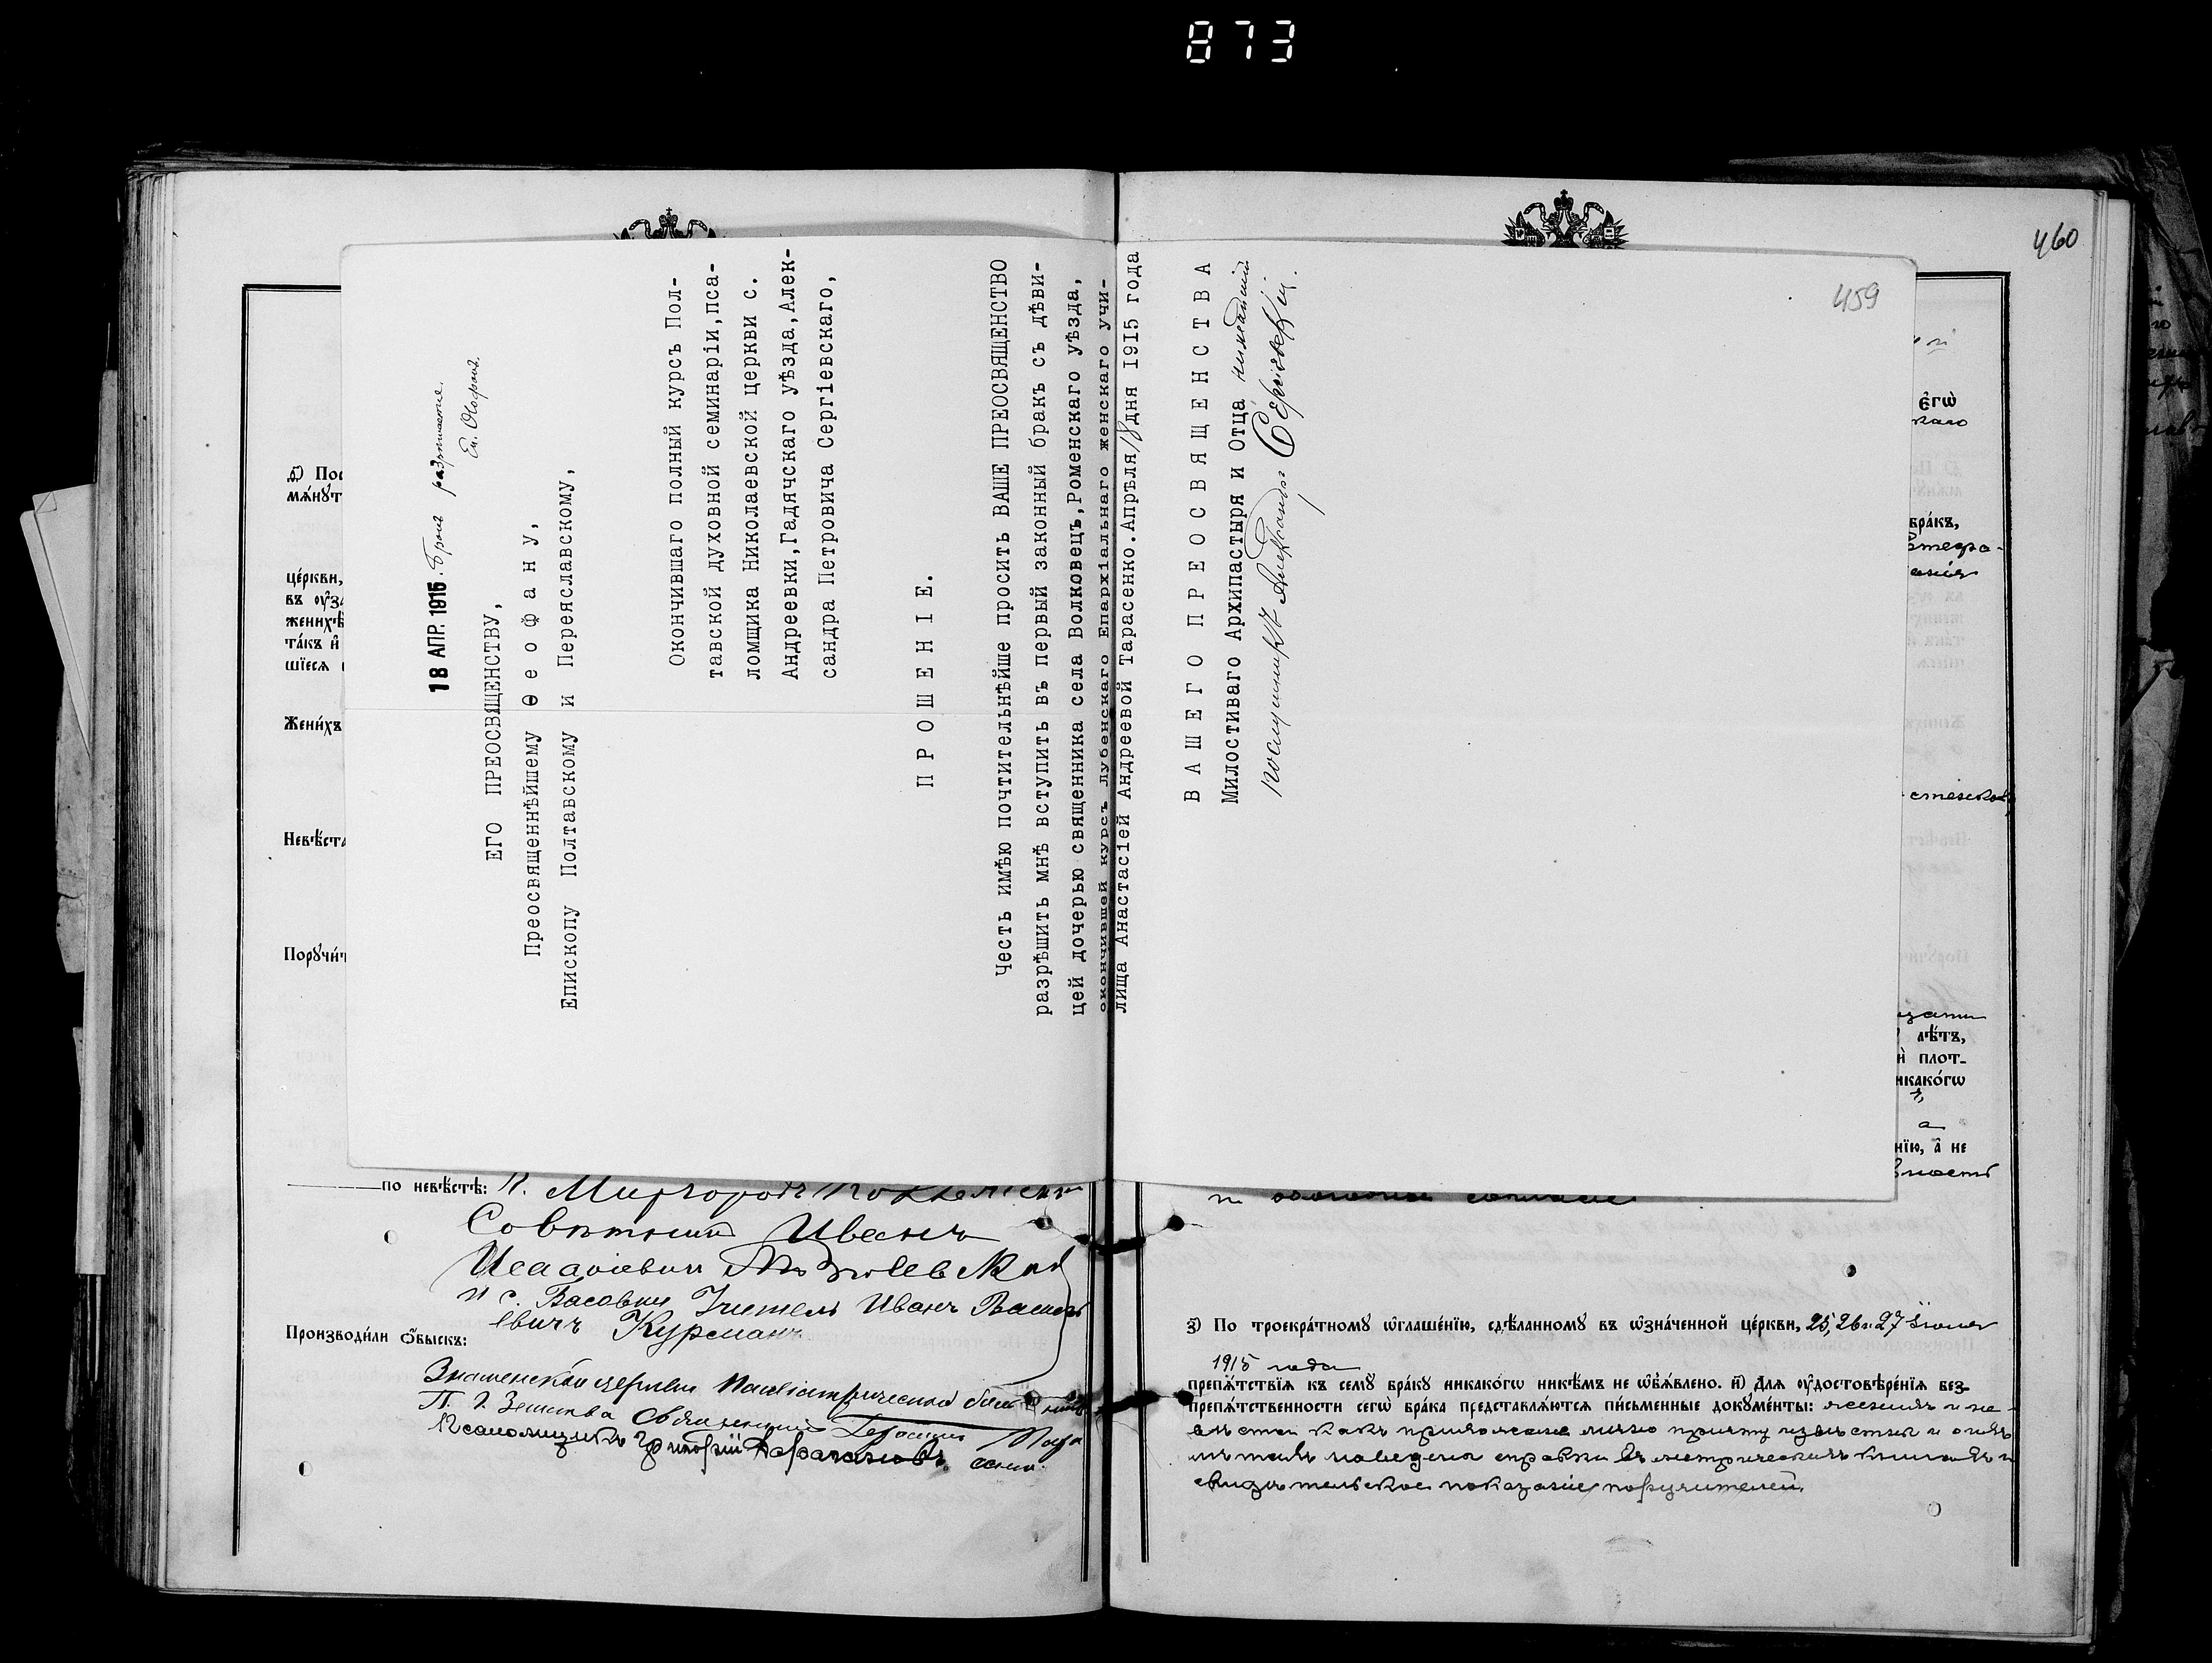 873
460
459
18 АПР. 1915. Бракъ разрѣшается.
Еп. Ѳеофанъ.
ЕГО ПРЕОСВЯЩЕНСТВУ,
Преосвященнѣйшему Ѳеофану,
Епископу Полтавскому и Переяславскому,
Окончившаго полный курсъ Пол-
тавской духовной семинаріи,пса-
ломщика Николаевской церкви с.
Андреевки,Гадячскаго уѣзда,Алек-
сандра Петровича Сергіевскаго,
ПРОШЕНІЕ.
Честь имѣю почтительнѣйше просить ВАШЕ ПРЕОСВЯЩЕНСТВО
разрѣшить мнѣ вступить въ первый законный бракъ съ дѣви-
цей дочерью священника села Волковецъ,Роменскаго уѣзда,
окончившей курсъ Лубенскаго Епархіальнаго женскаго учи-
лища Анастасіей Андреевой Тарасенко.Апрѣля 18 дня 1915 года
ВАШЕГО ПРЕОСВЯЩЕНСТВА
Милостиваго Архипастыря и Отца нижайшій
послушникъ Александръ Сергіевскій.
Пос
мѧнꙋт
цéркви,
въ
жених
тáкъ и
шїесѧ
Женихъ
Невѣста
Порꙋчит
по невѣстѣ: г. Миргородъ
Совѣтникъ Иванъ
и с. Васовки Учитель Иванъ
евичъ Курсманъ
Производили ѻбыскъ:
Знаменской церкви
П. Г. Земства Священникъ
Псаломщикъ Григорій
егѡ
бракъ,
лѣтъ,
плот-
никакóгѡ
нїю, а не
з) По троекрáтномꙋ ѡглашéнїю, сдѣ́ланномꙋ въ ѡзнáченной цéркви, 25, 26 и 27 Іюня
1915 года
препѧ́тствїѧ къ семꙋ брáкꙋ никакóгѡ никѣ́мъ не ѡб̾ѧ́влено. и) Длѧ ᲂудостовѣрéнїѧ без-
препѧ́тственности сегѡ брáка представлѧ́ютсѧ пи́сьменные докꙋмéнты: женихъ и не-
вѣста какъ прихожане лично причту извѣстны и о нихъ
наведены справки въ метрическихъ книгахъ и
свидѣтельское показаніе поручителей.